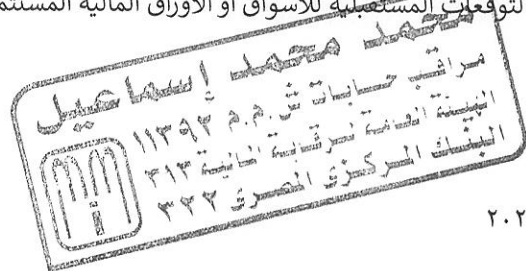 التوقعات المستقبلية للأسواق أو الأوراق المالية المستثم
محمد محمد إسماعيل
مراقب حسابات س.م.م ١١٣٩٢
الهيئة العامة للرقابة المالية ٣١٢
البنك المركزى المصرى ٣٢٢
٢٠٢